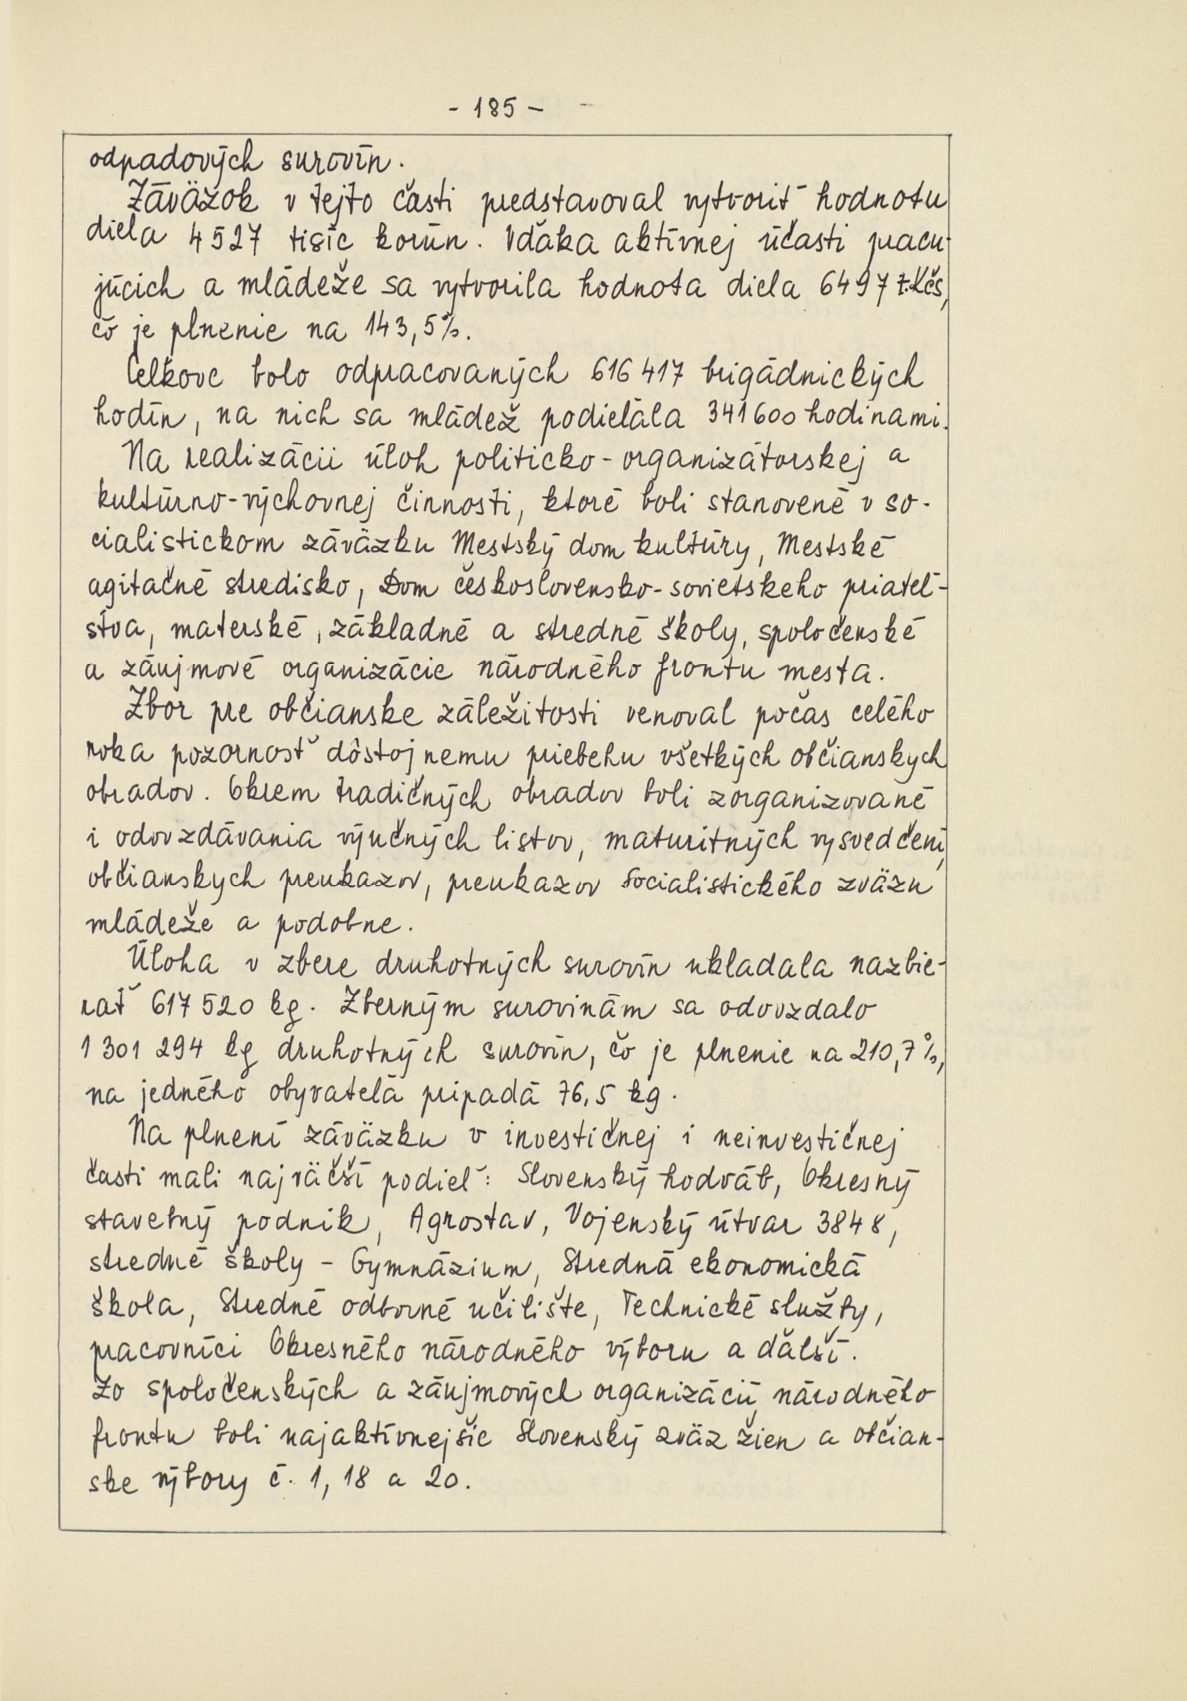 - 185 -
odpadových surovín.
Záväzok v tejto časti predstavoval vytvoriť hodnotu
diela 4 527 tisíc korún. Vďaka aktívnej účasti pracu-
júcich a mládeže sa vytvorila hodnota diela 6497 t.Kčs,
čo je plnenie na 143,5%.
Celkove bolo odpracovaných 616 417 brigádnických
hodín, na nich sa mládež podieľala 341 600 hodinami.
Na realizácii úloh politicko-organizátorskej a
kultúrno-výchovnej činnosti, ktoré boli stanovené v so-
cialistickom záväzku Mestský dom kultúry, Mestské
agitačné stredisko, Dom československo-sovietskeho priateľ-
stva, materské, základné a stredné školy, spoločenské
a záujmové organizácie národného frontu mesta.
Zbor pre občianske záležitosti venoval počas celého
roka pozornosť dôstojnemu priebehu všetkých občianskych
obradov. Okrem tradičných obradov boli zorganizované
i odovzdávania výučných listov, maturitných vysvedčení,
občianskych preukazov, preukazov Socialistického zväzu
mládeže a podobne.
Úloha v zbere druhotných surovín ukladala nazbie-
rať 617 520 kg. Zberným surovinám sa odovzdalo
1 301 294 kg druhotných surovín, čo je plnenie na 210,7%,
na jedného obyvateľa pripadá 76,5 kg.
Na plnení záväzku v investičnej i neinvestičnej
časti mali najväčší podiel: Slovenský hodváb, Okresný
stavebný podnik, Agrostav, Vojenský útvar 3848,
stredné školy - Gymnázium, Stredná ekonomická
škola, Stredné odborné učilište, Technické služby,
pracovníci Okresného národného výboru a ďalší.
Zo spoločenských a záujmových organizácií národného
frontu boli najaktívnejšie Slovenský zväz žien a občian-
ske výbory č. 1, 18 a 20.